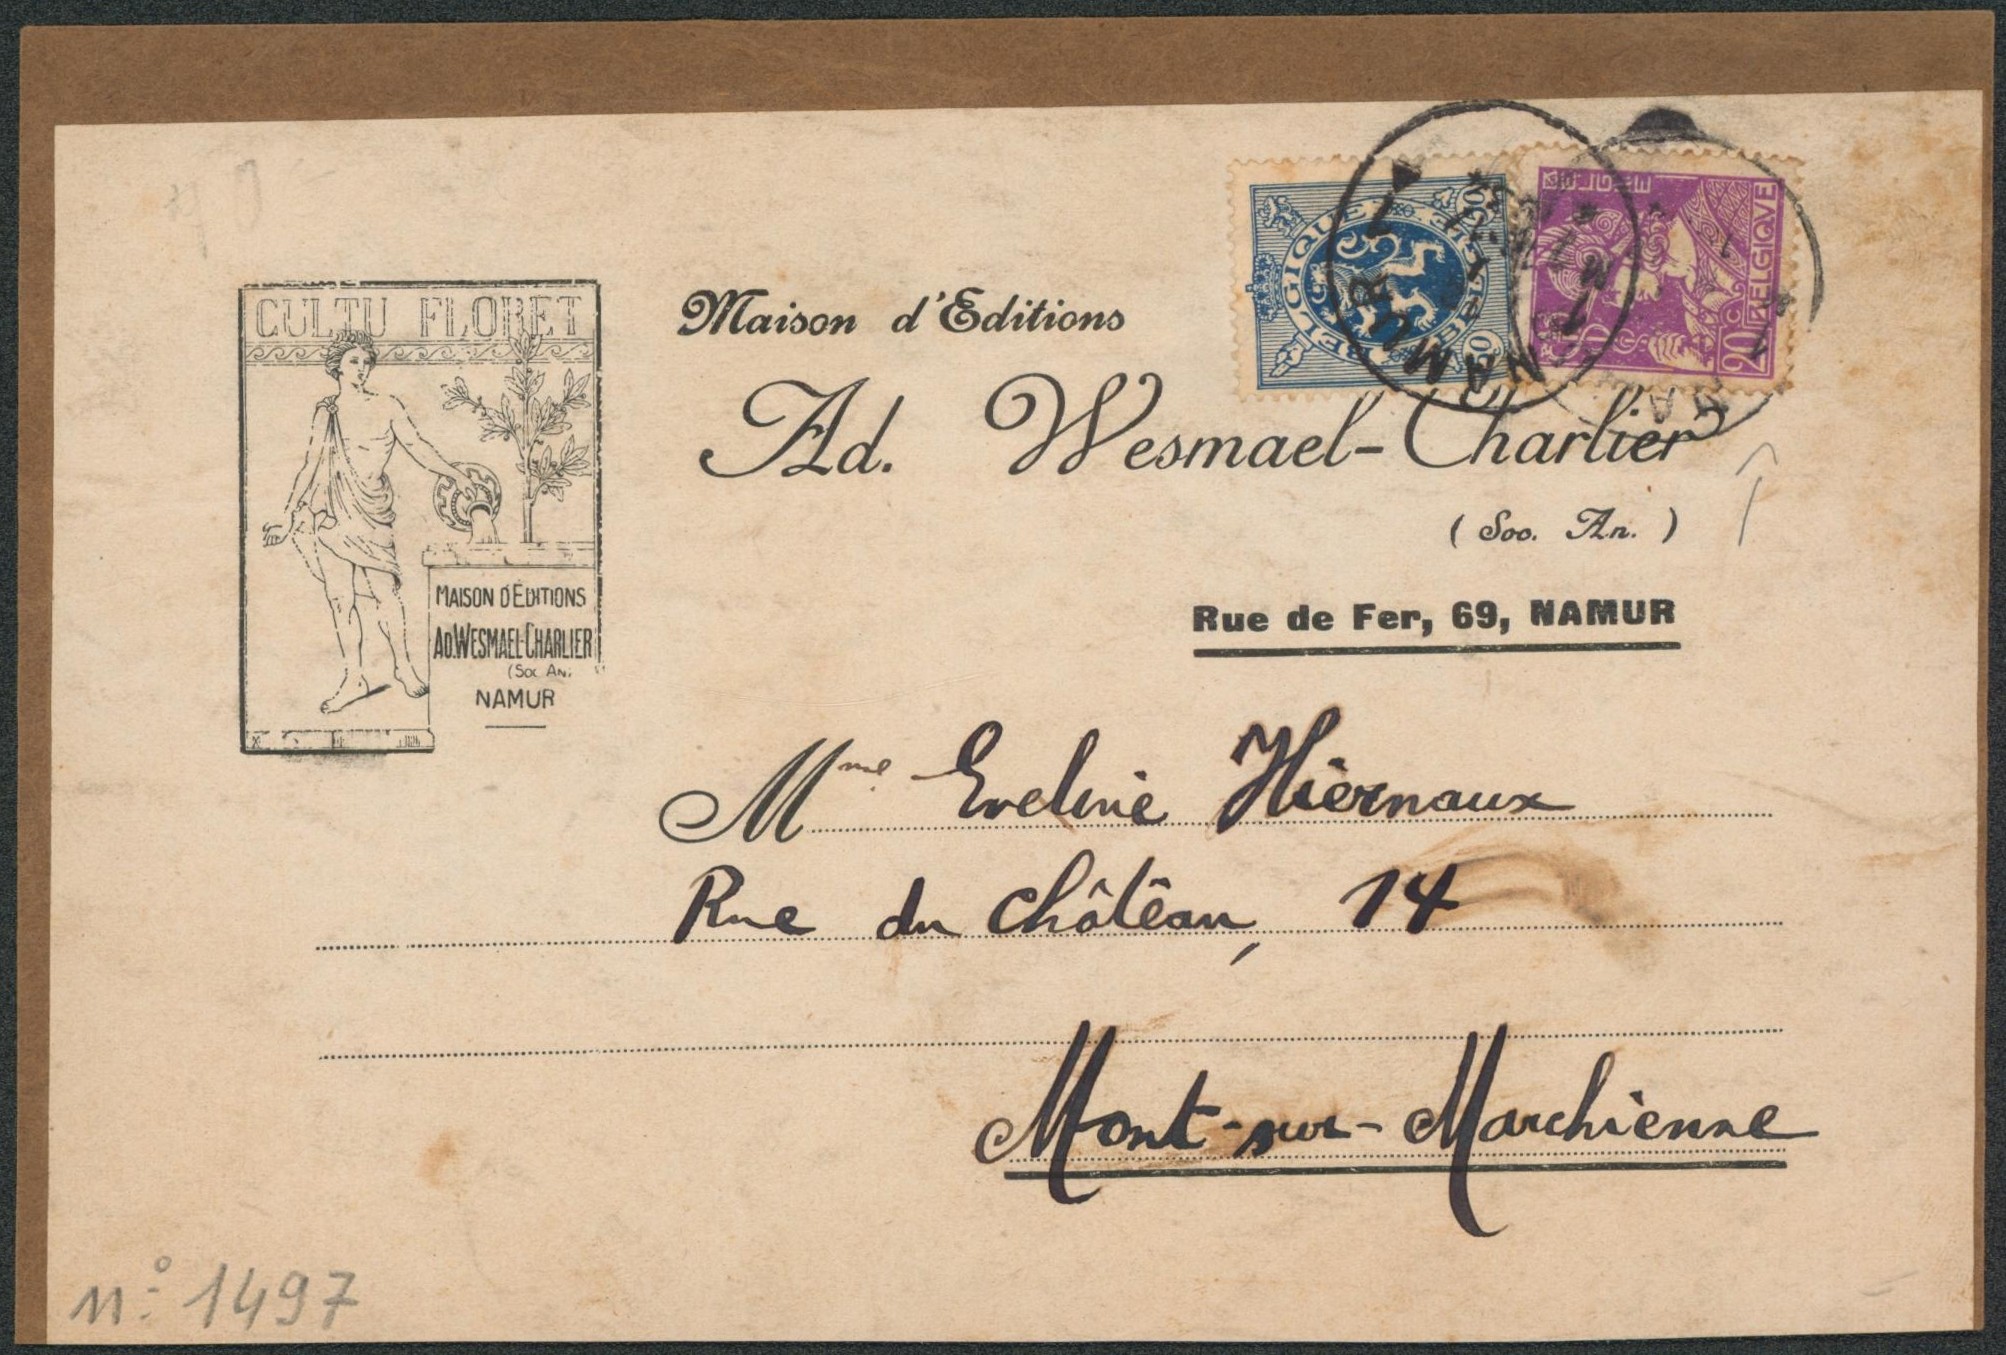 CULTU FLORET
MAISON D'EDITIONS
AD. WESMAEL-CHARLIER
(Soc. An.
NAMUR
Maison d'Editions
Ad. Wesmael-Charlier
(Soc. An.)
Rue de Fer, 69, NAMUR
BELGIQUE
BELGIE
50
50
BELGIE
BELGIQUE
20 C
NAMUR 1
Mme Eveline Hiernaux
Rue du Château, 14
Mont-sur-Marchienne
N° 1497